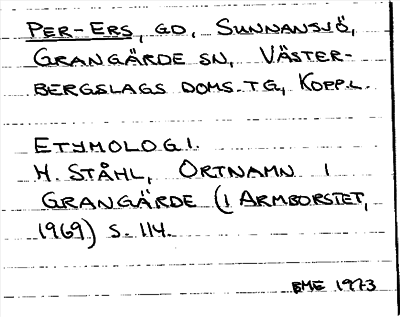 PER-ERS, GD, SUNNANSJÖ,
GRANGÄRDE SN, VÄSTER-
BERGSLAGS DOMS. TG, KOPP.L.
ETYMOLOGI.
H. STÅHL, ORTNAMN I
GRANGÄRDE (I ARMBORSTET,
1969) S. 114.
EME 1973